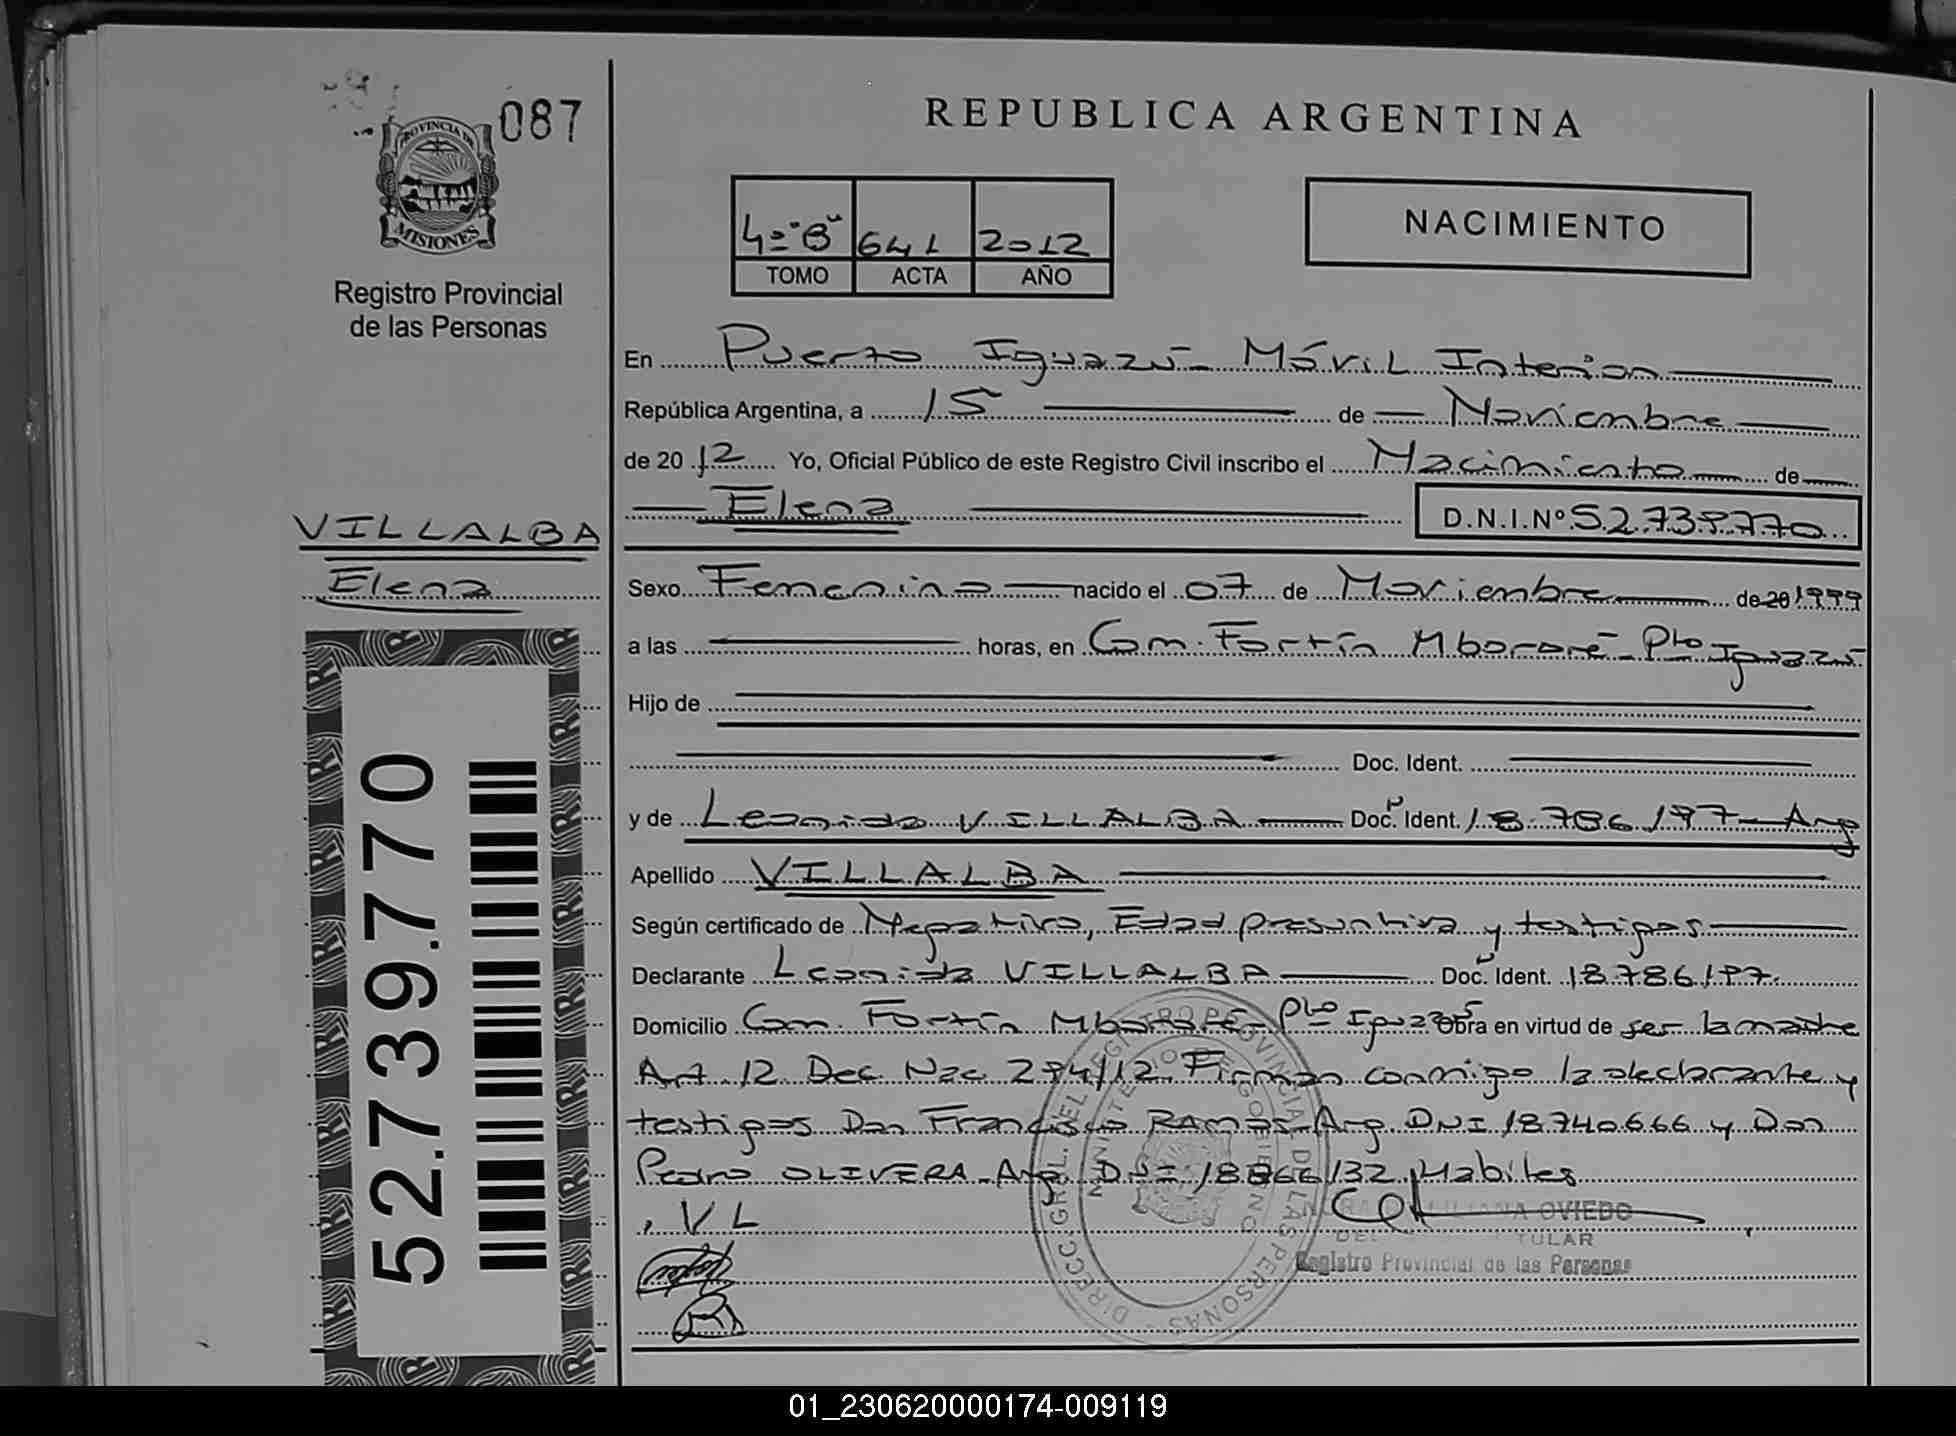 087
PROVINCIA DE
MISIONES
Registro Provincial
de las Personas
VILLALBA
Elena
52.739.770
REPUBLICA ARGENTINA
4º "B" 641 2012
TOMO ACTA AÑO
NACIMIENTO
En Puerto Iguazú - Móvil Interior
República Argentina, a 15 de Noviembre
de 2012 Yo, Oficial Público de este Registro Civil inscribo el Nacimiento de
Elena D.N.I.Nº 52.739.770
Sexo Femenino nacido el 07 de Noviembre de 20 1999
a las horas, en Com. Fortín Mbororé - Pto Iguazú
Hijo de
Doc. Ident.
y de Leonida VILLALBA Doc. Ident. 18.786.197 - Arg
Apellido VILLALBA
Según certificado de Negativo, Edad presuntiva y testigos
Declarante Leonida VILLALBA Doc. Ident. 18.786.197.
Domicilio Com. Fortín Mbororé - Pto Iguazú Obra en virtud de ser la madre
Art. 12 Dec Nac 294/12 Firman conmigo la declarante y
testigos Don Francisco RAMOS - Arg. DNI 18.740.666 y Don
Pedro OLIVERA - Arg. DNI 132 Habiles
V L
LILIANA OVIEDO
TITULAR
Registro Provincial de las Personas
DIRECC. GRAL. DEL REGISTRO PROVINCIAL DE LAS PERSONAS
MINISTERIO DE GOBIERNO
01_230620000174-009119